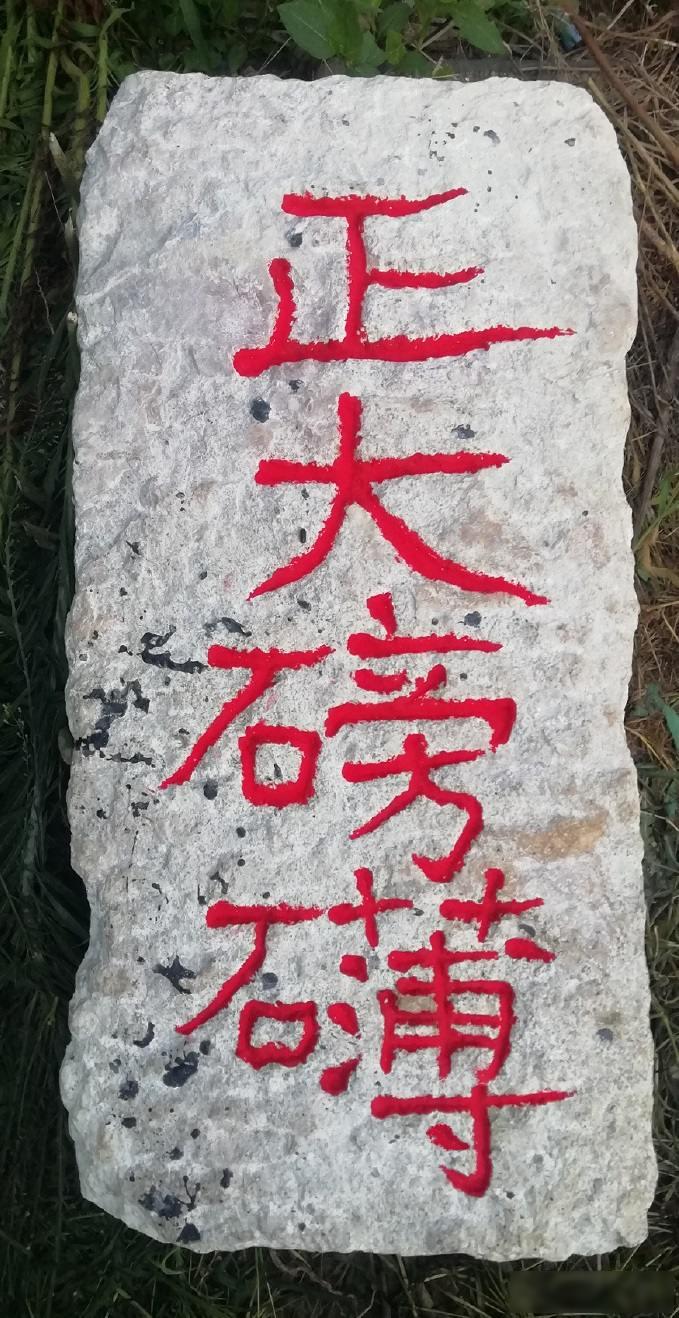 正大磅礴